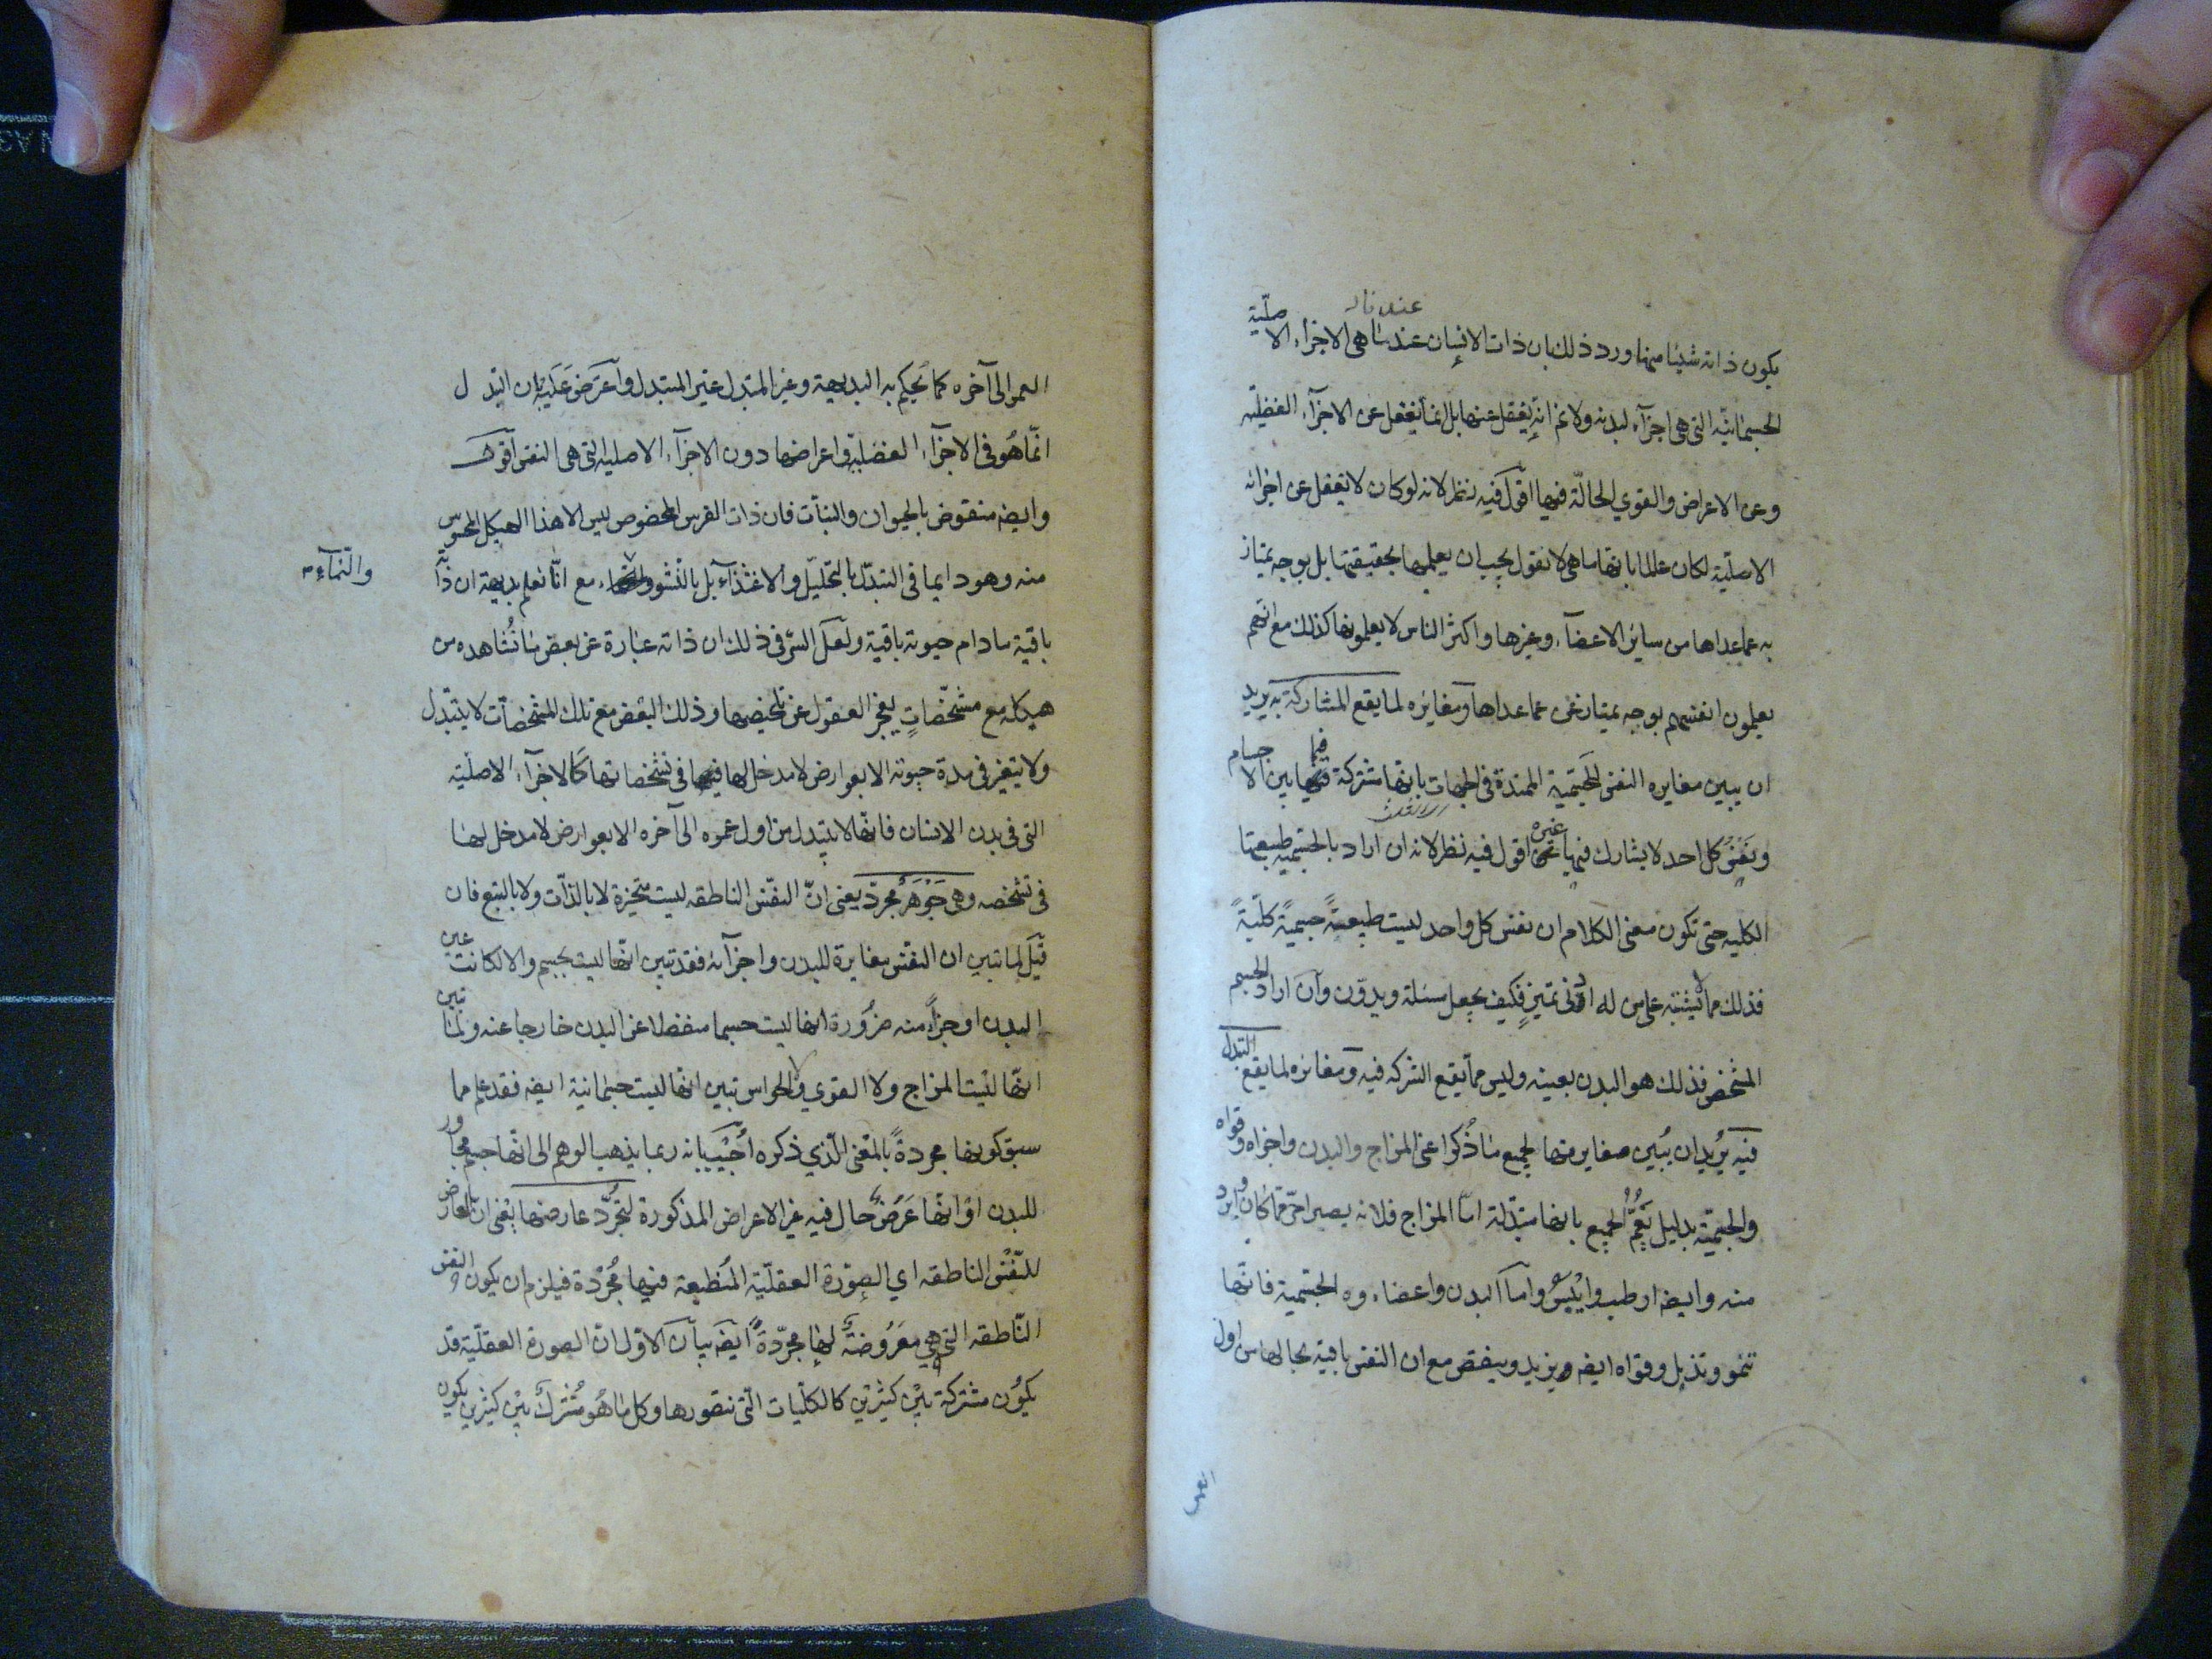 يكون ذاته شيئا منها ورد ذلك بان ذات الانسان عندنا هى الاجزاء الاصلية
الجسمانية التى هى اجزآء لبدنه ولا نم انه يغفل عنها بل انما يغفل عن الاجزآء الفضلية
وعن الاعراض والقوي الحالّة فيها اقول فيه نظر لانه لو كان لا يغفل عن اجزائه
الاصلية لكان عالما بانها ما هى لا نقول يجب ان يعلمها بحقيقتها بل بوجه يمتاز
به عما عداها من سائر الاعضآء وغيرها واكثر الناس لا يعلمونها كذلك مع انهم
يعلمون انفسهم بوجه يمتاز عن عما عداها ومغايره لما يقع المشاركة به يريد
ان يبين مغايره النفس للجسمية الممتدة فى الجهات بانها مشتركة فيها بين الاجسام
ونفس كل احد لا يشارك فيها غيره اقول فيه نظر لانه ان اراد بالجسمية طبيعتها
الكليه حتى تكون معنى الكلام ان نفس كل واحد ليست طبيعةً جسميةً كليّةً
فذلك مما لا يشتبه على من له ادنى تميز فكيف يجعل مسئلة ويدوّن وان اراد الجسم
المشخص فذلك هو البدن بعينه وليس مما يقع الشركه فيه ومغايره لما يقع التبدل
فيه يريد ان يبين مغايرتها لجميع ما ذكر اعنى المزاج والبدن واجزاه وقواه
والجسمية بدليل يعُمُّ الجميع بانها متبدّلة امّا المزاج فلانه يصير احرّ مما كان وابرد
منه وايضه ارطب وايبس وامّا البدن واعضاءوه الجسمية فانّها
تنمو وتذبل وقواه ايضه ويزيد وينقص مع ان النفس باقية بحالها من اول
العمر
العمر الى آخره كما يحكم به البديهة وغير المتبدل غير المتبدل واعترض عليه بان التبدل
انّما هُو فى الاجزآء الفضلية واعراضها دون الاجزآء الاصلية التى هى النفس اقول
وايضه منقوض بالحيوان والنبات فان ذات الفرس المخصوص ليس الا هذا الهيكل المحسوس
منه وهو دايما فى التبدّل بالتحليل والاغتذآء بل بالنشو والنمآء مع انّا نعلم بديهة ان ذاته
والنمآء
باقية ما دام حيوته باقية ولعل السّر فى ذلك ان ذاته عبارة عن بعض ما نُشاهده من
هيكله مع مشخّصاتٍ يعجز العقول عن تلخيصها وذلك البعض مع تلك المشخصات لا يتبدّل
ولا يتغير فى مدة حيوته الا بعوارض لا مدخل لها فى تشخصاتها كالاجزآء الاصليّة
التى فى بدن الانسان فانّها لا يتبدل من اول عمره الى آخره الا بعوارض لا مدخل لها
فى تشخصه وهى جَوْهَرٌ مجرّد يعنى انّ النفس الناطقه ليست متحيّزة لا بالذّات ولا بالتبع فان
قيل لما تبين ان النفس مغايرة للبدن واجزآئه فقد تبين انّها ليست بجسم والا لكانت عين
البدن او جزأً منه ضرُورة انها ليست جسما منفصلا عن البدن خارجا عنه ولما تبين
انّها ليست المزاج ولا القوي والحواس تبين انّها ليست جسمانية ايضه فقد علم مما
سبق كونها مجردةً بالمعنى الّذي ذكره اُجيب بانه ربما يذهب الوهم الى انّها جسم مجاور
للبدن اوْ انّها عَرَضٌ حال فيه غير الاعراض المذكورة لتجرّد عارضها يعنى انّ العارض
للنّفس الناطقه اي الصورة العقليّة المُنطبعة فيها مُجرّدة فيلزم ان يكون النفس
النّاطقه التى هي معرُوضةٌ لها مجرّدةً ايضه بيان الاوّل انّ الصورة العقليّة قد
يكُون مشتركة بيْن كثيْرين كالكلّيات الّتى نتصورها وكل ما هُو مُشْتركٌ بيْن كثيرين يكون